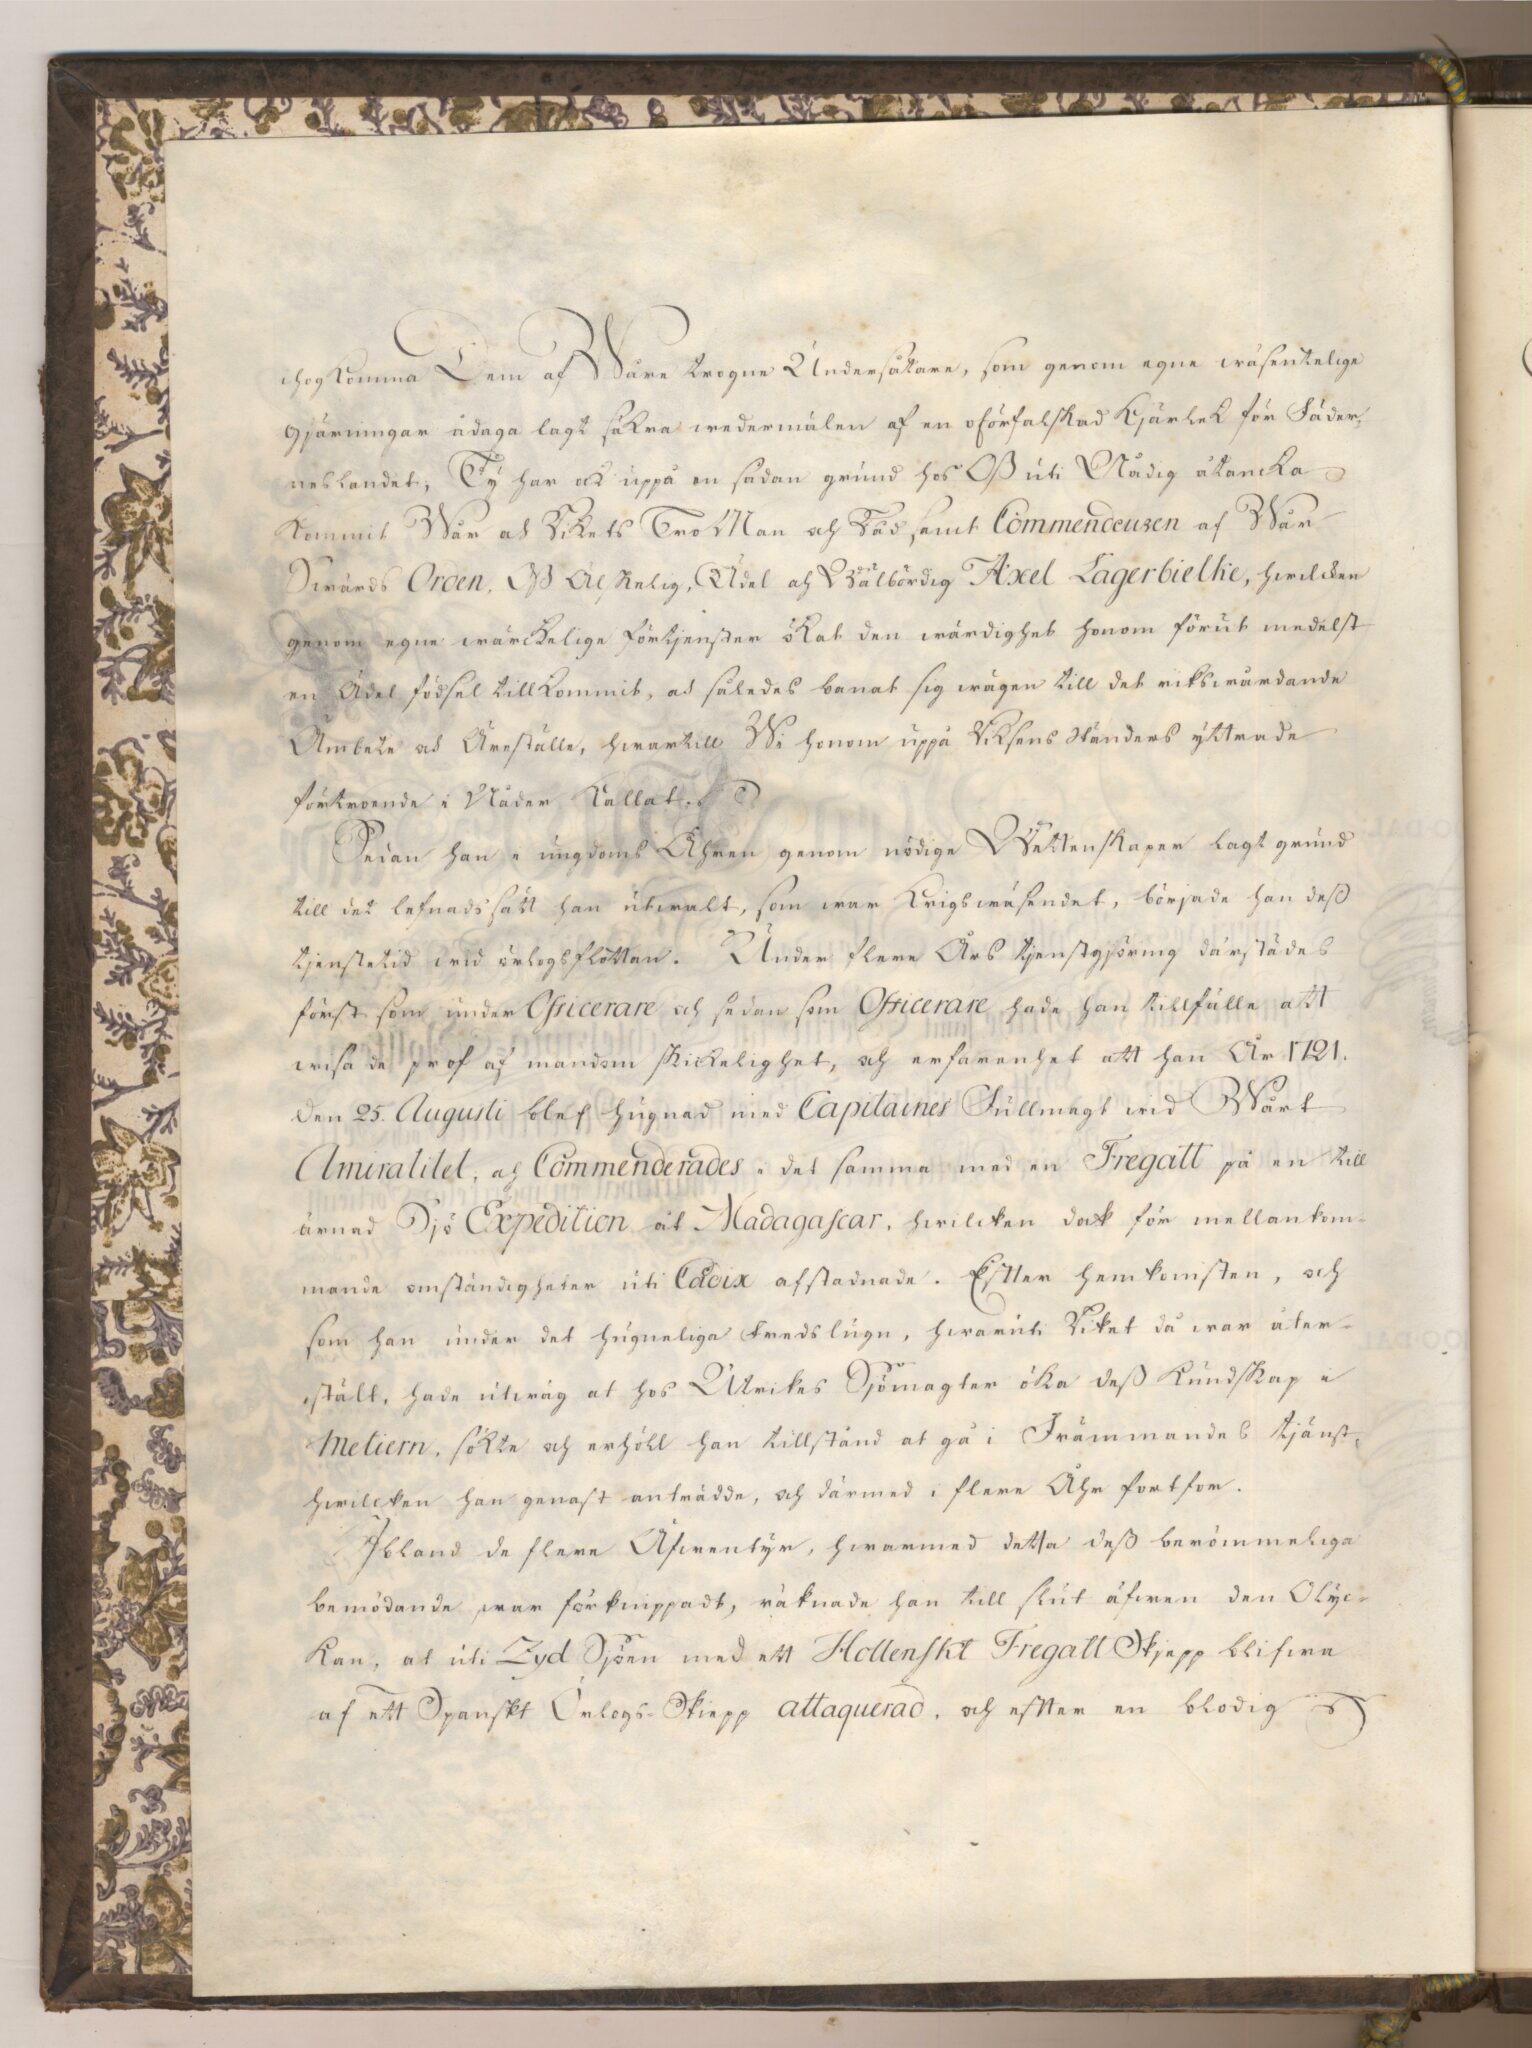 ihogkomma Dem af Wåre trogne Undersåtare, som genom egne wäsentelige
gjärningar ådaga lagt säkra wedermälen af en oförfalskad Kjärlek för Fäder-
neslandet; Ty har ock uppå en sådan grund hos Oß uti Nådig åtancka
kommit Wår och Rikets Tro Man och Råd samt Commendeuren af Wår
Swärds Orden, Oß Älskelig, Ädel och Wälbördig Axel Lagerbielke, hwilcken
genom egne wärckelige förtjenster ökat den wärdighet honom förut medelst
en Ädel födsel tillkommit, och således banat sig wägen till det rikswårdande
Ämbete och Äreställe, hwartill Wi honom uppå Riksens Ständers yttrade
förtroende i Nåder kallat.
Sedan han i ungdoms Åhren genom nödige Wettenskaper lagt grund
till det lefnadssätt han utwalt, som war Krigswäsendet, började han deß
tjenstetid wid örlogsflottan. Under flere Års tjenstgjöring därstädes
först som under Officerare och sedan som Officerare hade han tillfälle att
wisa de prof af mandom skickelighet, och erfarenhet att han År 1721.
den 25. Augusti blef hugnad med Capitaines Fullmagt wid Wårt
Amiralitet, och Commenderades i det samma med en Fregatt på en till
ärnad Sjö Expedition åt Madagascar, hwilcken dock för mellankom-
mande omständigheter uti Cadix afstadnade. Efter hemkomsten, och
som han under det hugneliga Fredslugn, hwaruti Riket då war åter-
stält, hade utwäg at hos Utrikes Sjömagter öka deß Kundskap i
Metiern, sökte och erhöll han tillstånd at gå i Främmandes tjänst,
hwilcken han genast anträdde, och därmed i flere Åhr fortfor.
Ibland de flere Äfwentyr, hwarmed detta deß berömmeliga
bemödande war förknippadt, räknade han till slut äfwen den Olyc-
kan, at uti Zyd Sjöen med ett Hollenskt Fregatt Skjepp blifwa
af ett Spanskt Örlogs-Skiepp attaquerad, och efter en blodig